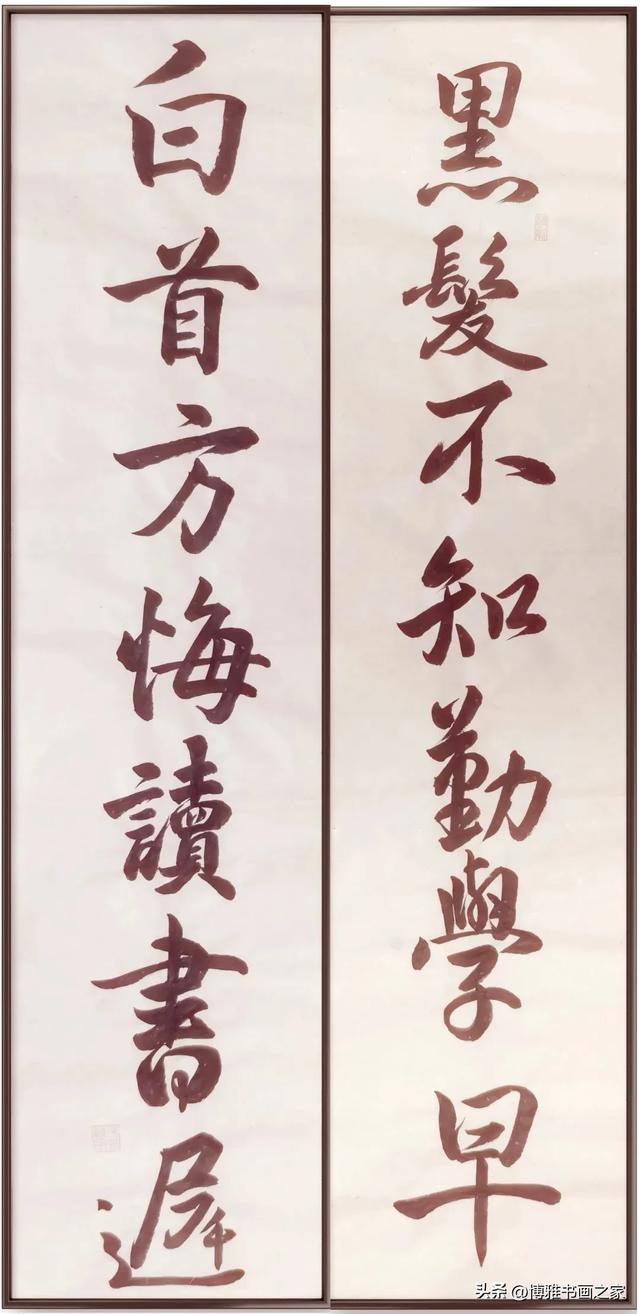 黑髮不知勤學早
白首方悔讀書遲
头条 @博雅书画之家